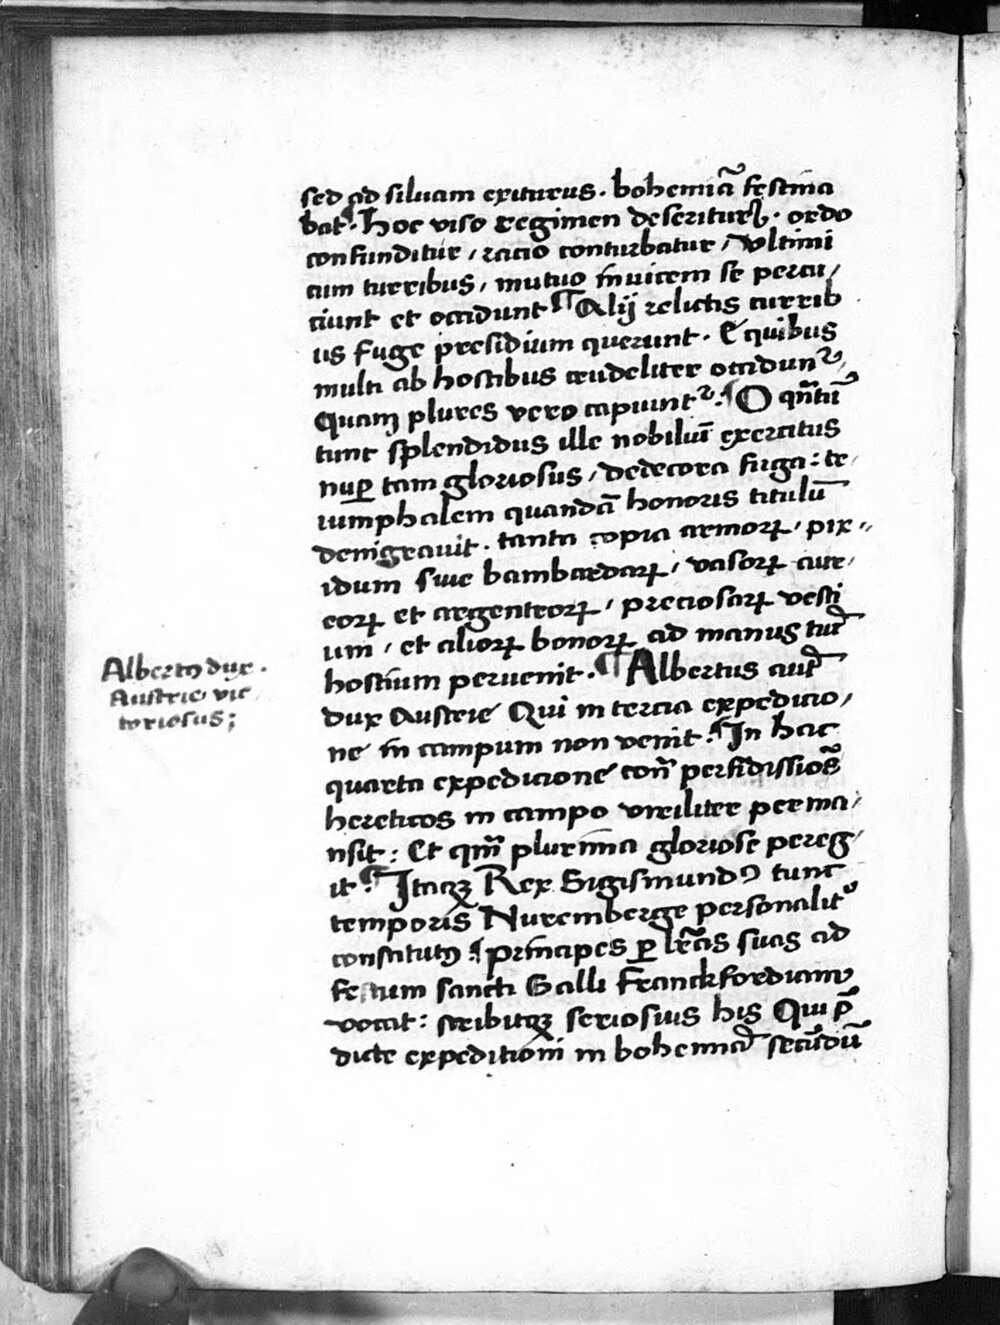 sed ad siluam exiturus . bohemiā festina
bat . ¶ hoc viso regimen deseritur . ordo
confunditur / racio conturbatur / vltimi
cum curribus / mutuo inuicem se percu /
ciunt et occidunt ¶ Alij relictis currib
us fuge presidium querunt . Et quibus
multi ab hostibus crudeliter occidunt᷑ ,
Quam plures vero capiunt᷑ . ¶ O qn̄tū
tunc splendidus ille nobiliū exercitus
nuꝑ tam gloriosus / dedecora fuga : tr /
iumphalem quandā honoris titulū
denigrauit . tanta copia armoꝝ / pix〃
idum siue bambardaꝝ / vasoꝝ aure /
eoꝝ et argenteoꝝ / preciosaꝝ vesti
um / et alioꝝ bonoꝝ ad manus tūc
hostium peruenit . ¶ Albertus aut̄
dux Austrie Qui in tercia expedicio /
ne in campum non venit . ¶ In hac
quarta expedicione con̄ perfidissiōs
hereticos in campo viriliter perma /
nsit : Et qm̄ plurima gloriose pereg /
it . ¶ Itaqꝫ Rex Sigismundꝰ tunc
temporis Nuremberge personalit᷑
constitutꝰ . ¶ principes ꝑ lr̄as suas ad
festum sancti Galli Franckfordiam
vocat : scribitqꝫ seriosius his Qui p̄
dicte expeditioni in bohemia secūdū
Albertꝰ dux .
Austrie vic
toriosus ;